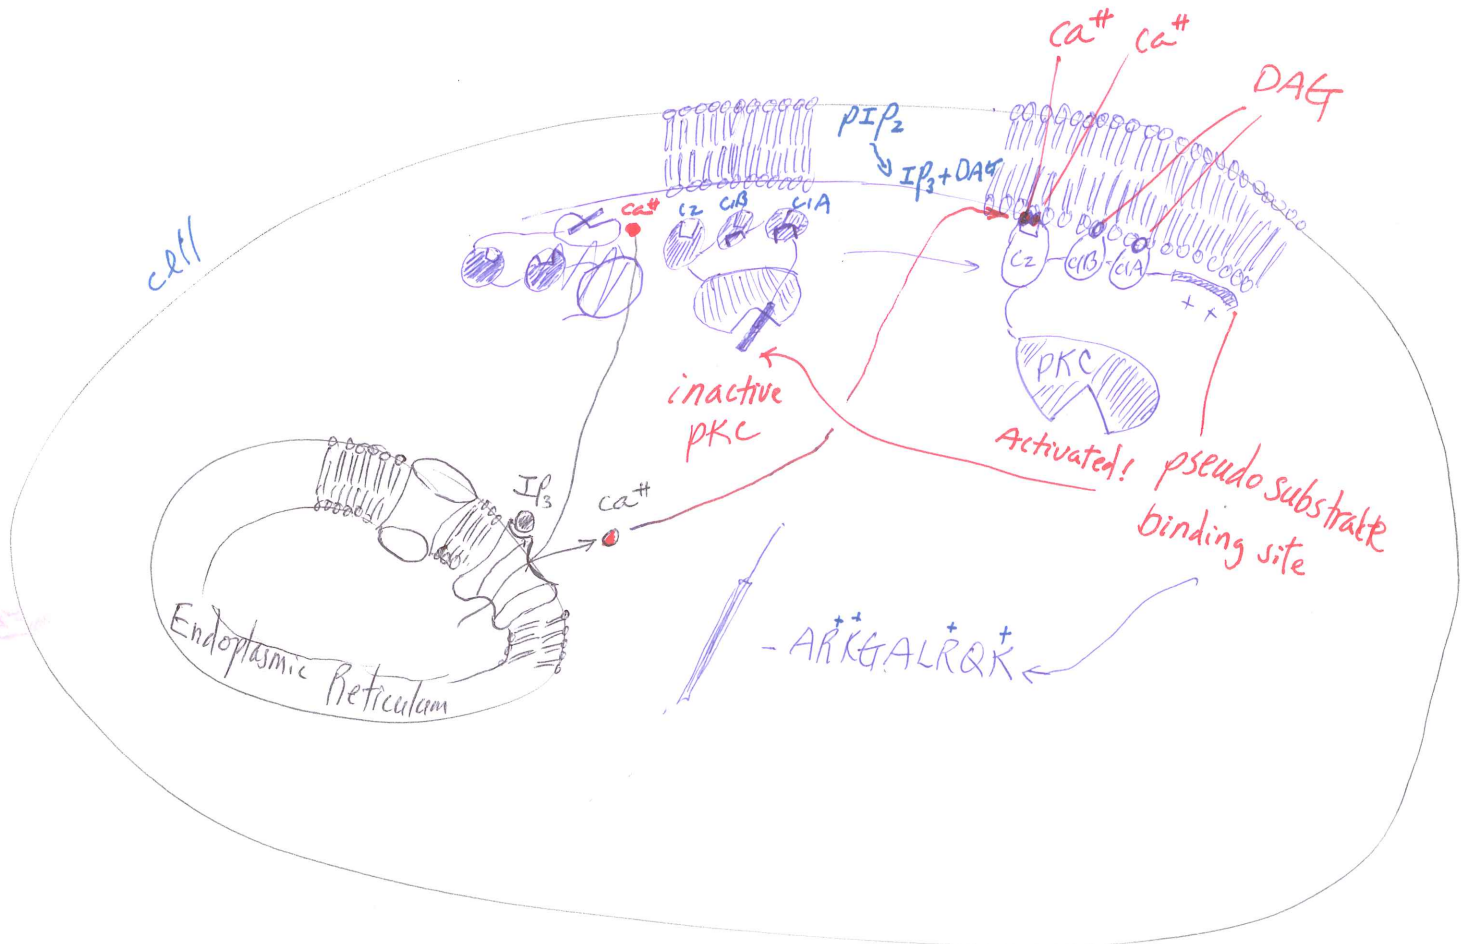 Ca++ Ca++
DAG
PIP2
IP3+DAG
cell
Ca++
C2 C1B C1A
C2 C1B C1A
+ +
PKC
inactive
PKC
Activated!
pseudo substrate
binding site
IP3
Ca++
-ARKGALRQK
+ + + +
Endoplasmic
Reticulum